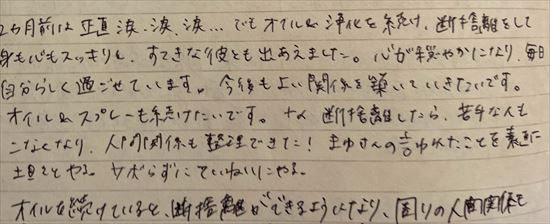 2ヵ月前は正直涙、涙、涙…でもオイル&浄化を続け、断捨離をして
身も心もスッキリし、すてきな彼とも出あえました。心が穏やかになり、毎日
自分らしく過ごせています。今後もよい関係を築いていきたいです。
オイル&スプレーも続けたいです。+α 断捨離したら、苦手な人も
こなくなり、人間関係も整理できた!まゆさんの言われたことを素直に
コツコツとやる。サボらずにていねいにやる。
オイルを続けていると、断捨離ができるようになり、周りの人間関係も